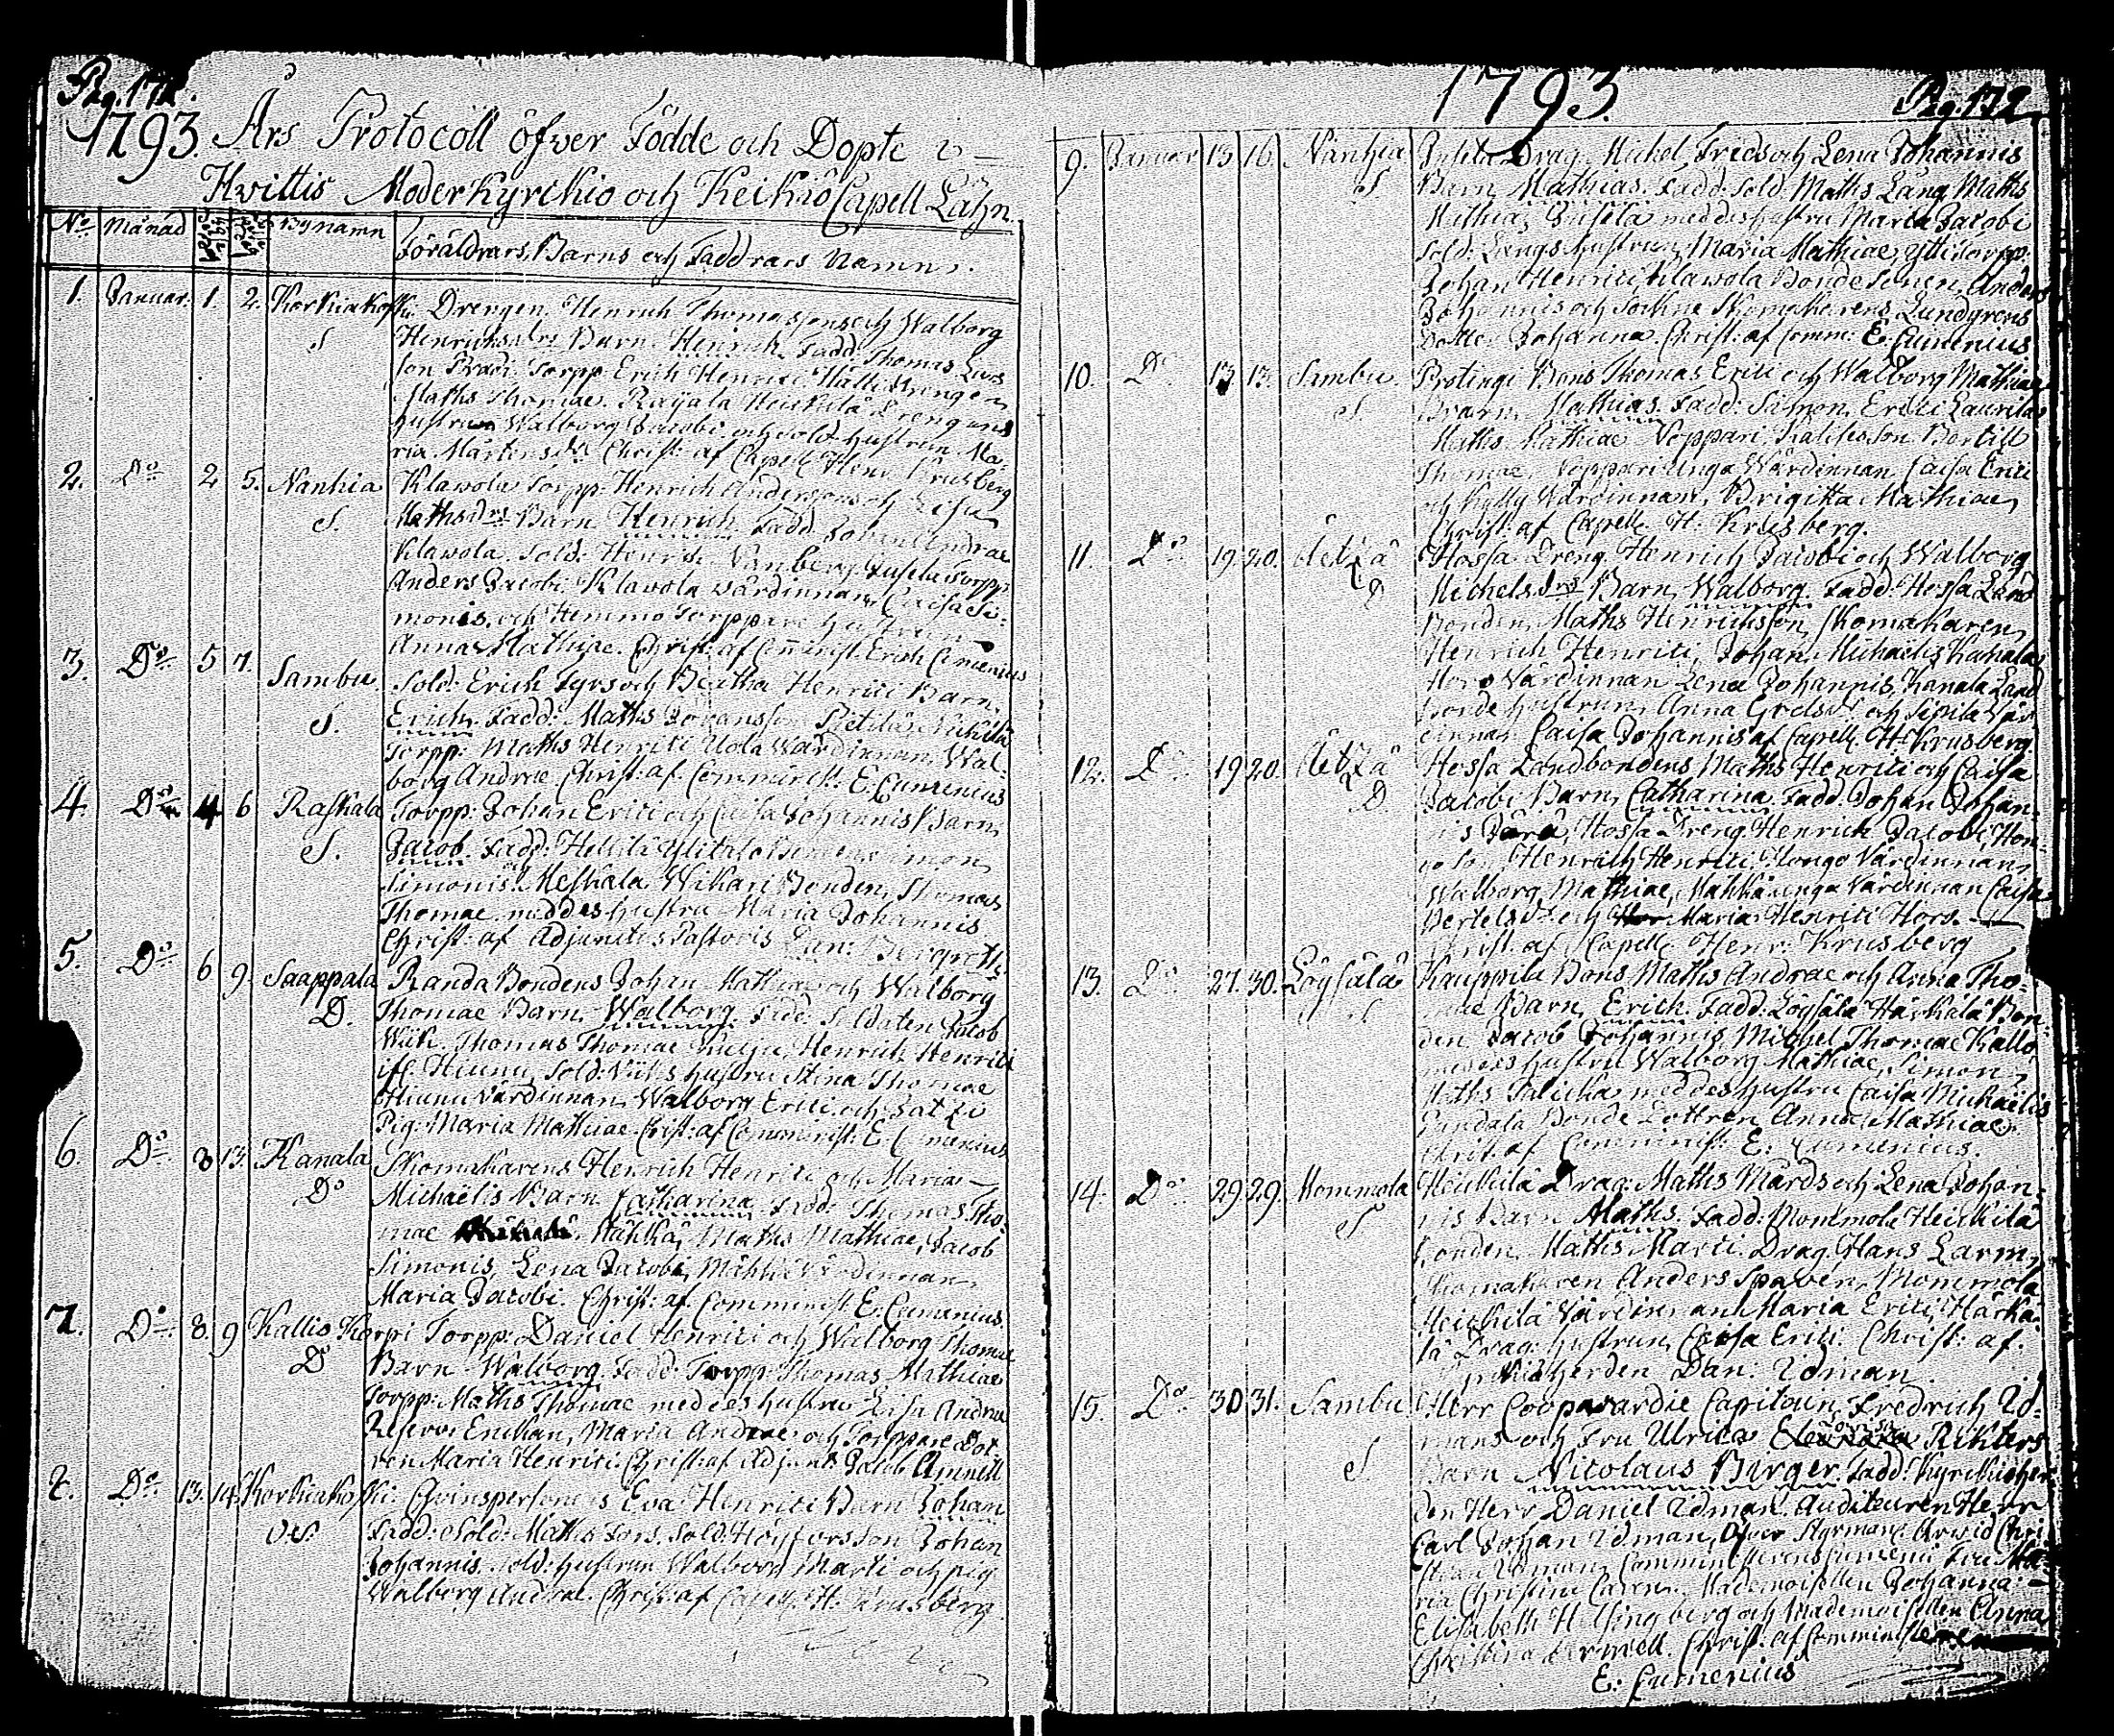 Pag. 171.
1793. Års Protocoll öfver Födde och Dopte i
Hvittis Moderkyrckio och Keikiö Capell Låhn.
No Månad Bynamn Föräldrars, Barns och Faddrars Namn.
1. Januar. 1. 2. Korkiakoski Drengen Henrich Thomassons och Walborg
S Henrichsdrs Barn Henrich. Fadd: Thomas Lars
son Prädi Torpp: Erich Henrici Hälli Drengen
Maths Thomae. Raijala Heickilä Drengens
hustrun Walborg Jacobi och Sold. hustrun Ma-
ria Mårtensdr Christ: af Capell: Henr: Krusberg
2. Do 2 5. Nanhia Klawola Torpp: Henrich Anderssons och Lisa
S. Mathsdrs Barn Henrich Fadd: Johan Andrae
Klawola. Sold: Henrich Nanberg. Jusela Torpp:
Anders Jacobi. Klavola värdinnan Caisa Si-
monis, och Hemmo Torppare hustrun
Anna Mathiae. Christ: af Comminist. Erich Cumenius
3. Do 5 7. Sambu. Sold: Erich Fyrs och Beatha Henrici Barn,
S. Erich. Fadd: Maths Johansson Pietilä, Nickilä
Torpp: Maths Henrici Uola Wärdinnan Wal-
borg Andrae Christ: af Comminist: E: Cumenius
4. Do 4 6 Raskala Torpp: Johan Erici och Caisa Johannis Barn,
S. Jacob. Fadd: Simon
Simonis. Meskala Wikari Bonden, Thomas
Thomae med des hustru Maria Johannis
Christ: af Adjunctus Pastoris Bergroth.
5. Do 6 9. Saappala Randa Bondens Johan Mathiae och Walborg
D. Thomae Barn, Walborg. Fadd: Soldaten Jacob
Wiik. Thomas Thomae Henrich Henrici
Hiunu, Sold: Wiiks hustru Stina Thomae
Hiunu Värdinnan, Walborg Erici och
Pig: Maria Mathiae. Christ: af Comminist: E: Cumenius
6. Do 8 13. Kanala Skomakarens Henrich Henrici och Maria
D Michaëlis Barn Catharina. Fadd: Thomas Tho-
mae Mähkä, Maths Mathiae, Jacob
Simonis, Lena Jacobi, Mähkä Värdinnan
Maria Jacobi. Christ: af Comminist: E: Cumenius
7. Do 8. 9 Kallis Korpi Torpp: Daniel Henrici och Walborg Thomae
D Barn Walborg. Fadd: Torpp: Thomas Mathiae
Torpp: Maths Thomae med des hustru Lisa Andrae
Reserv Enckan, Maria Andrae och Torppare Dot-
ren Maria Henrici. Christ: af Adjunct: Jacob Amnell
8. Do 13. 14. Korkiakoski: Qvinspersonens Eva Henrici Barn Johan
O.S. Fadd: Sold: Maths Fors, Sold: Höyforsson Johan
Johannis. Sold: hustrun Walborg Marti och pig:
Walborg Andrae. Christ: af Capell: H: Krusberg
1793. Pag. 172.
9. Januar 15 16. Nanhia Jusela Drag: Michel Freds och Lena Johannis
S Barn Mathias. Fadd: Sold. Maths Lång, Maths
Mathiae Jusela med des hustru Maria Jacobi
Sold: Långs hustrun, Maria Mathiae,
Johan Henrici Klawola Bonde Sonen, Anders
Johannis och Sockne Skomakarens Lundgrens
Dotter Johanna. Christ: af Comm: E: Cumenius
10. Do 13 13. Sambu. Brotingi Bons Thomas Erici och Walborg Mathiae
S Barn Mathias. Fadd: Simon Erici Laurila,
Maths Mathiae Noppari, Bertill
Thomae, Noppari Unga Wärdinnan, Caisa Erici
och Kylly Wärdinnan, Brigitta Mathiae,
Christ: af Capell: H: Krusberg.
11. Do 19. 20. Aetzä Hossa Dreng Henrich Jacobi och Walborg
D Michelsdrs Barn, Walborg. Fadd: Hossa Land
Bonden Maths Henrichsson, Skomakaren,
Henrich Henrici, Johan Michaëlis Kanala
Horo Värdinnan Lena Johannis, Kanala Land
bonde hustrun, Anna Grelsdr och Sipilä Vär-
dinnan Caisa Johannis af Capell: H: Krusberg.
12. Do 19 20 Aetzä Hossa Landbondens Maths Henrici och Caisa
D Jacobi Barn, Catharina. Fadd: Johan Johan-
nis Jära, Hossa Dreng Henrich Jacobi, Hon-
go Son, Henrich Henrici, Hongo Värdinnan,
Walborg Mathiae, Mähkä unga Värdinnan Caisa
Bertelsdr och Maria Henrici Horo.
Christ: af Capell: Henr: Krusberg
13. Do 27. 30. Löysälä Kauppila Bons Maths Andrae och Anna Tho-
S mae Barn, Erich. Fadd: Löysälä Härkälä Bon-
den Jacob Johannis, Michel Thomae Kallo,
med des hustru Walborg Mathiae, Simon
Maths med des hustru Caisa Michaëlis
Bonde Dottren, Anna Mathiae.
Christ: af Comminist: E: Cumenius.
14. Do 29. 29. Mommola Heickilä Drag: Maths Mårds och Lena Johan-
S nis Barn Maths. Fadd: Mommola Heickilä
bonden, Maths Marti. Drag. Hans Larm,
Skomakaren Anders Spaven, Mommola
Heickilä Värdinnan Maria Erici, Härkä-
lä Drag: hustrun, Caisa Erici. Christ: af
Kyrckioherden Dan: Idman.
15. Do 30 31. Sambu Herr Coopvardie Capitain Fredrich Id-
mans och Fru Ulrica Rikters
S Barn Nicolaus Birger. Fadd: Kyrckioher-
den Herr Daniel Idman. Auditeuren Herr
Carl Johan Idman, Öfver Styrman: Arvid Chri-
stian Idman, Comministerens Cumenii Fru Ma-
ria Christina Mademoisellen Johanna
Elisabeth Helsingberg och Mademoisellen Anna
Christina Christ: af Comministeren
E: Cumenius